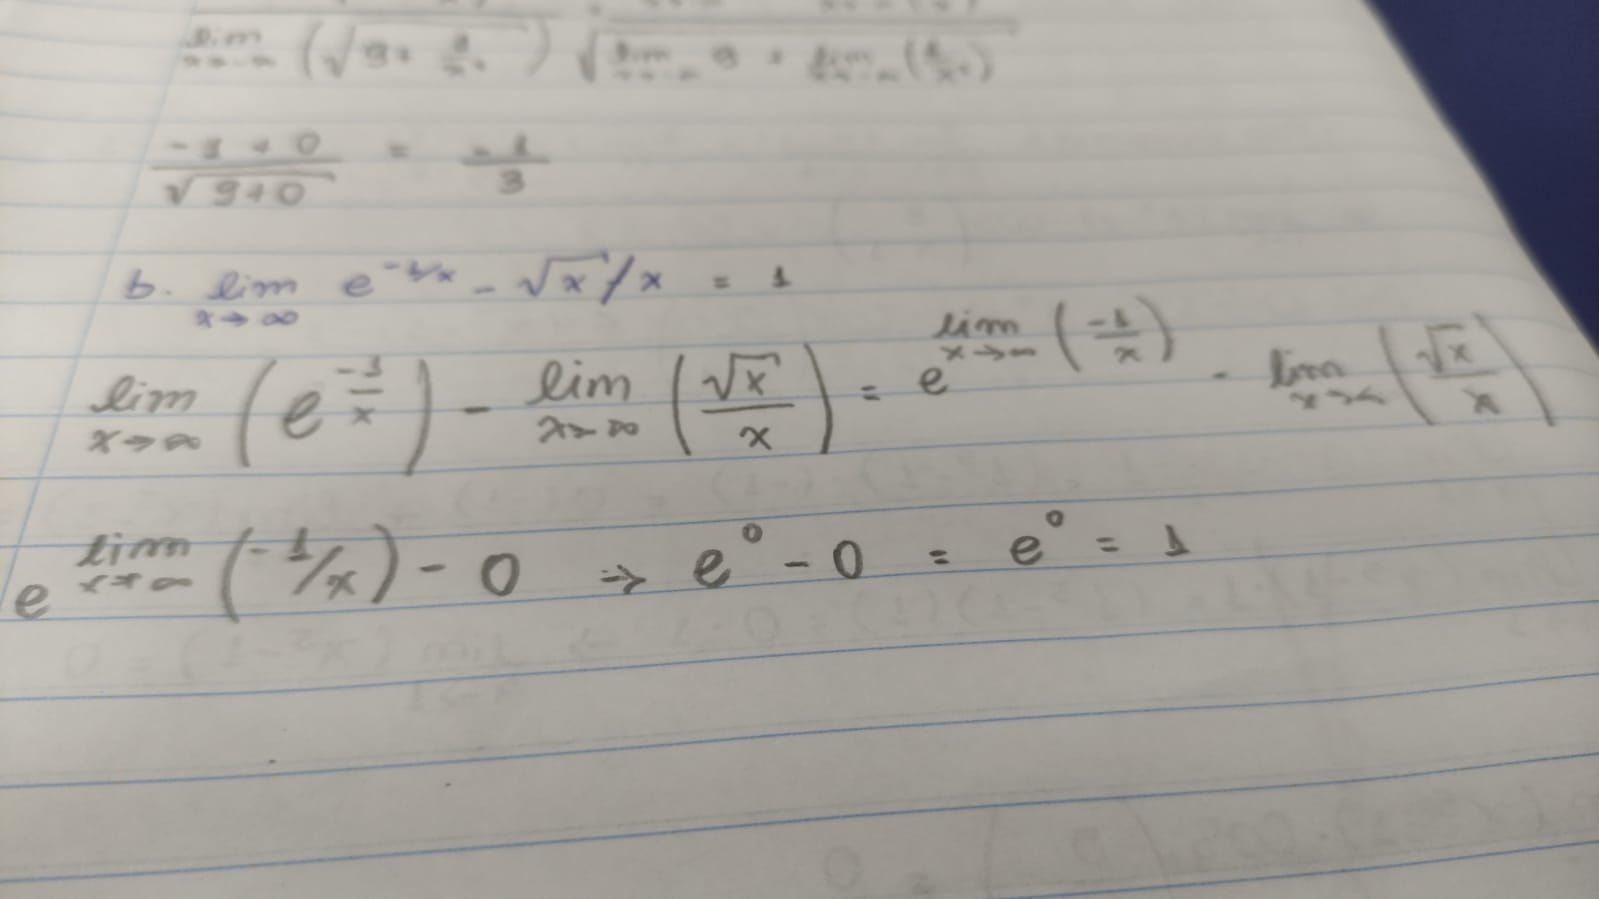 lim x→-∞ (√9+ ) √lim 9 + lim (1/x²)
-1+0/√9+0 = -1/3
b. lim x→∞ e^-1/x - √x/x = 1
lim x→∞ (e^-1/x) - lim x→∞ (√x/x) = e^lim x→∞ (-1/x) - lim x→∞ (√x/x)
e^lim x→∞ (-1/x) - 0 ⇒ e^0 - 0 = e^0 = 1